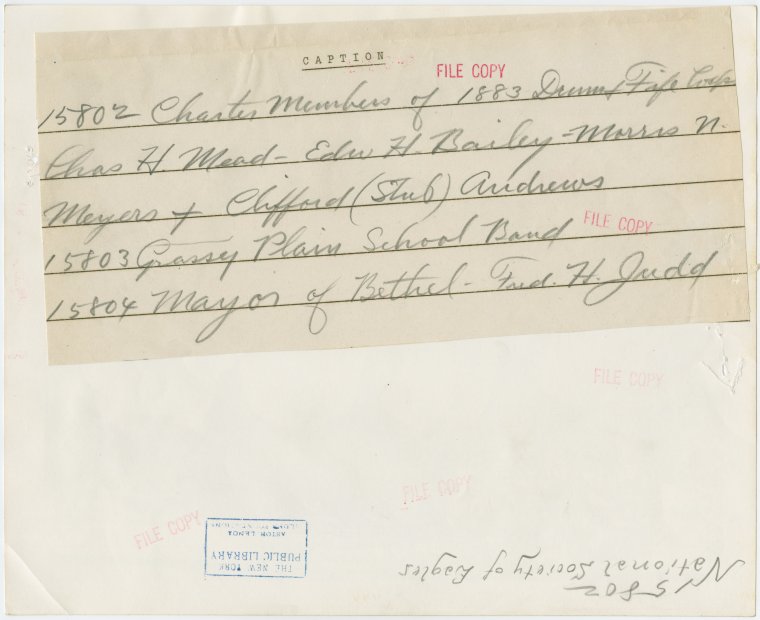 CAPTION
FILE COPY
15802 Charter Members of 1883 Drum & Fife Corps
Chas H. Mead - Edw H. Bailey - Morris N.
Meyers + Clifford (Stub) Andrews
15803 Grassy Plain School Band
FILE COPY
15804 Mayor of Bethel - Fred. H. Judd
FILE COPY
FILE COPY
FILE COPY
THE NEW YORK
PUBLIC LIBRARY
ASTOR LENOX
15802
National Society of Eagles